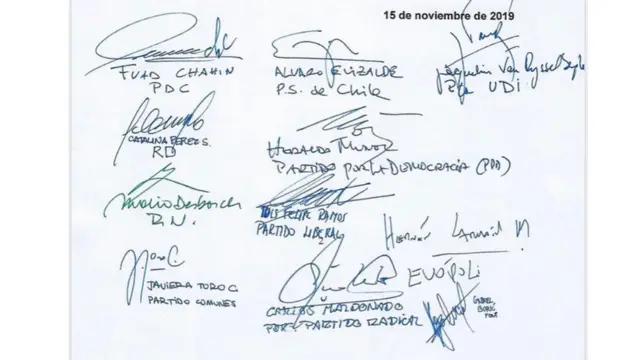 15 de noviembre de 2019
FUAD CHAHIN
PDC
ALVARO ELIZALDE
P.S. de Chile
Jacquelin Van Rysselberghe
UDI
CATALINA PEREZ S.
RD
HERALDO MUÑOZ
PARTIDO POR LA DEMOCRACIA (PPD)
Mario Desbordes
R.N.
LUIS FELIPE RAMOS
PARTIDO LIBERAL
HERNÁN LARRAÍN M.
EVÓPOLI
JAVIERA TORO C
PARTIDO COMUNES
CARLOS MALDONADO
POR PARTIDO RADICAL
GABRIEL
BORIC
FONT